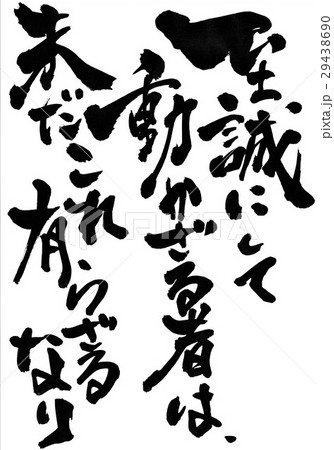 至誠にして
動かざる者は、
未だこれ有らざるなり
PIXTA
pixta.jp - 29438690